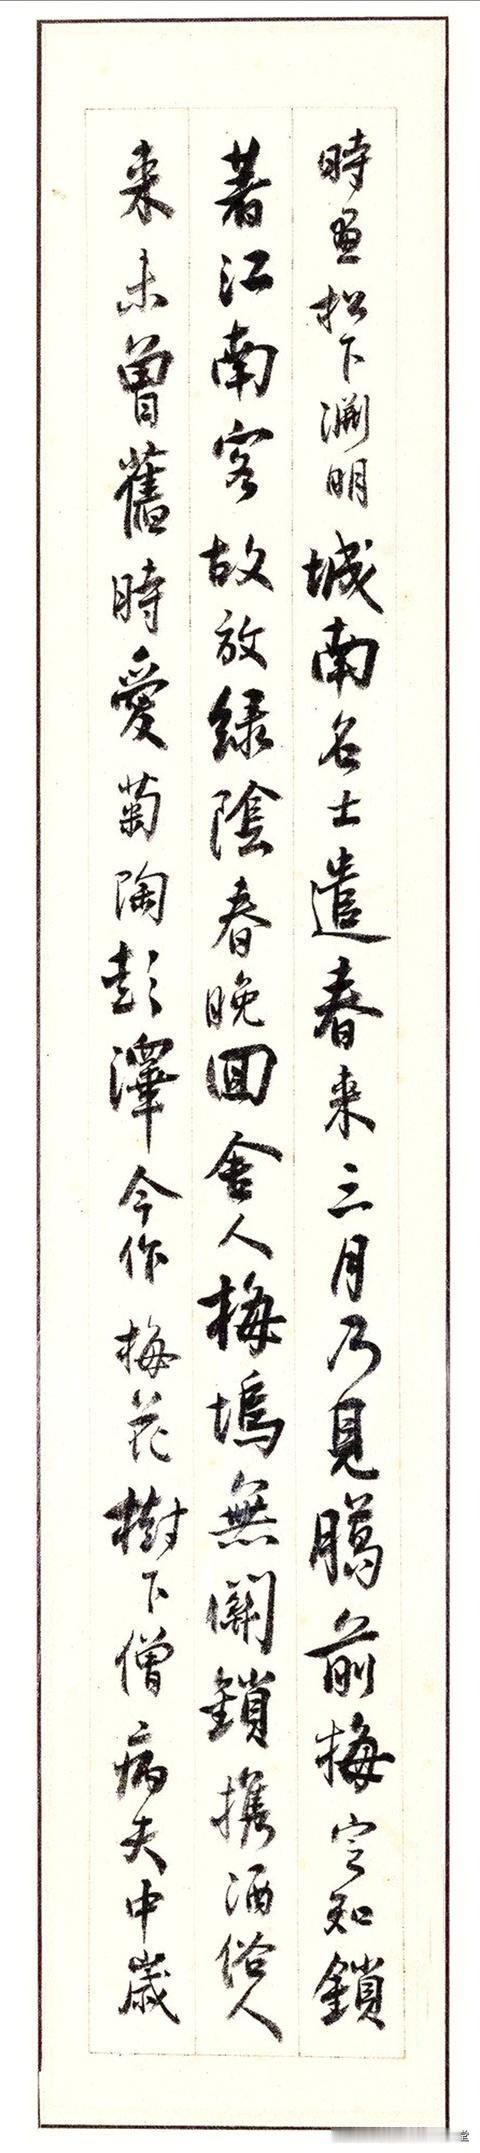 時畫松下淵明城南名士遣春来三月乃見臈前梅定知鎖
著江南客故放綠陰春晚回舍人梅塢無關鎖携酒俗人
来未曾舊時愛菊陶彭澤今作梅花樹下僧病夫中歲
堂